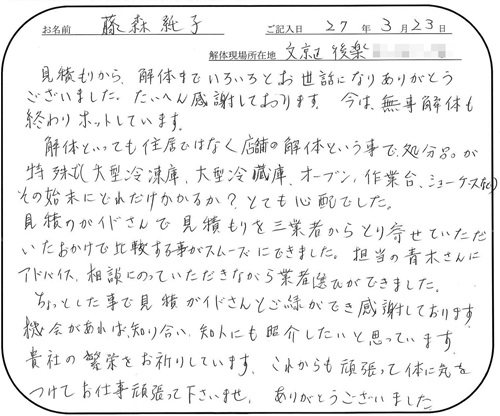 お名前 藤森純子 ご記入日 27年3月23日
解体現場所在地 文京区後楽
見積もりから、解体までいろいろとお世話になりありがとう
ございました。たいへん感謝しております。今は、無事解体も
終わりホットしています。
解体といっても住居ではなく店舗の解体という事で、処分品が
特殊で(大型冷凍庫、大型冷蔵庫、オーブン、作業台、ショーケースなど)
その始末にどれだけかかるか?とても心配でした。
見積のガイドさんで見積もりを三業者からとり寄せていただ
いたおかげで比較する事がスムーズにできました。担当の青木さんに
アドバイス、相談にのっていただきながら業者選びができました。
ちょっとした事で見積ガイドさんとご縁ができ感謝しております。
機会があれば知り合い、知人にも紹介したいと思っています。
貴社の繁栄をお祈りしています。これからも頑張って体に気を
つけてお仕事頑張って下さいませ。ありがとうございました